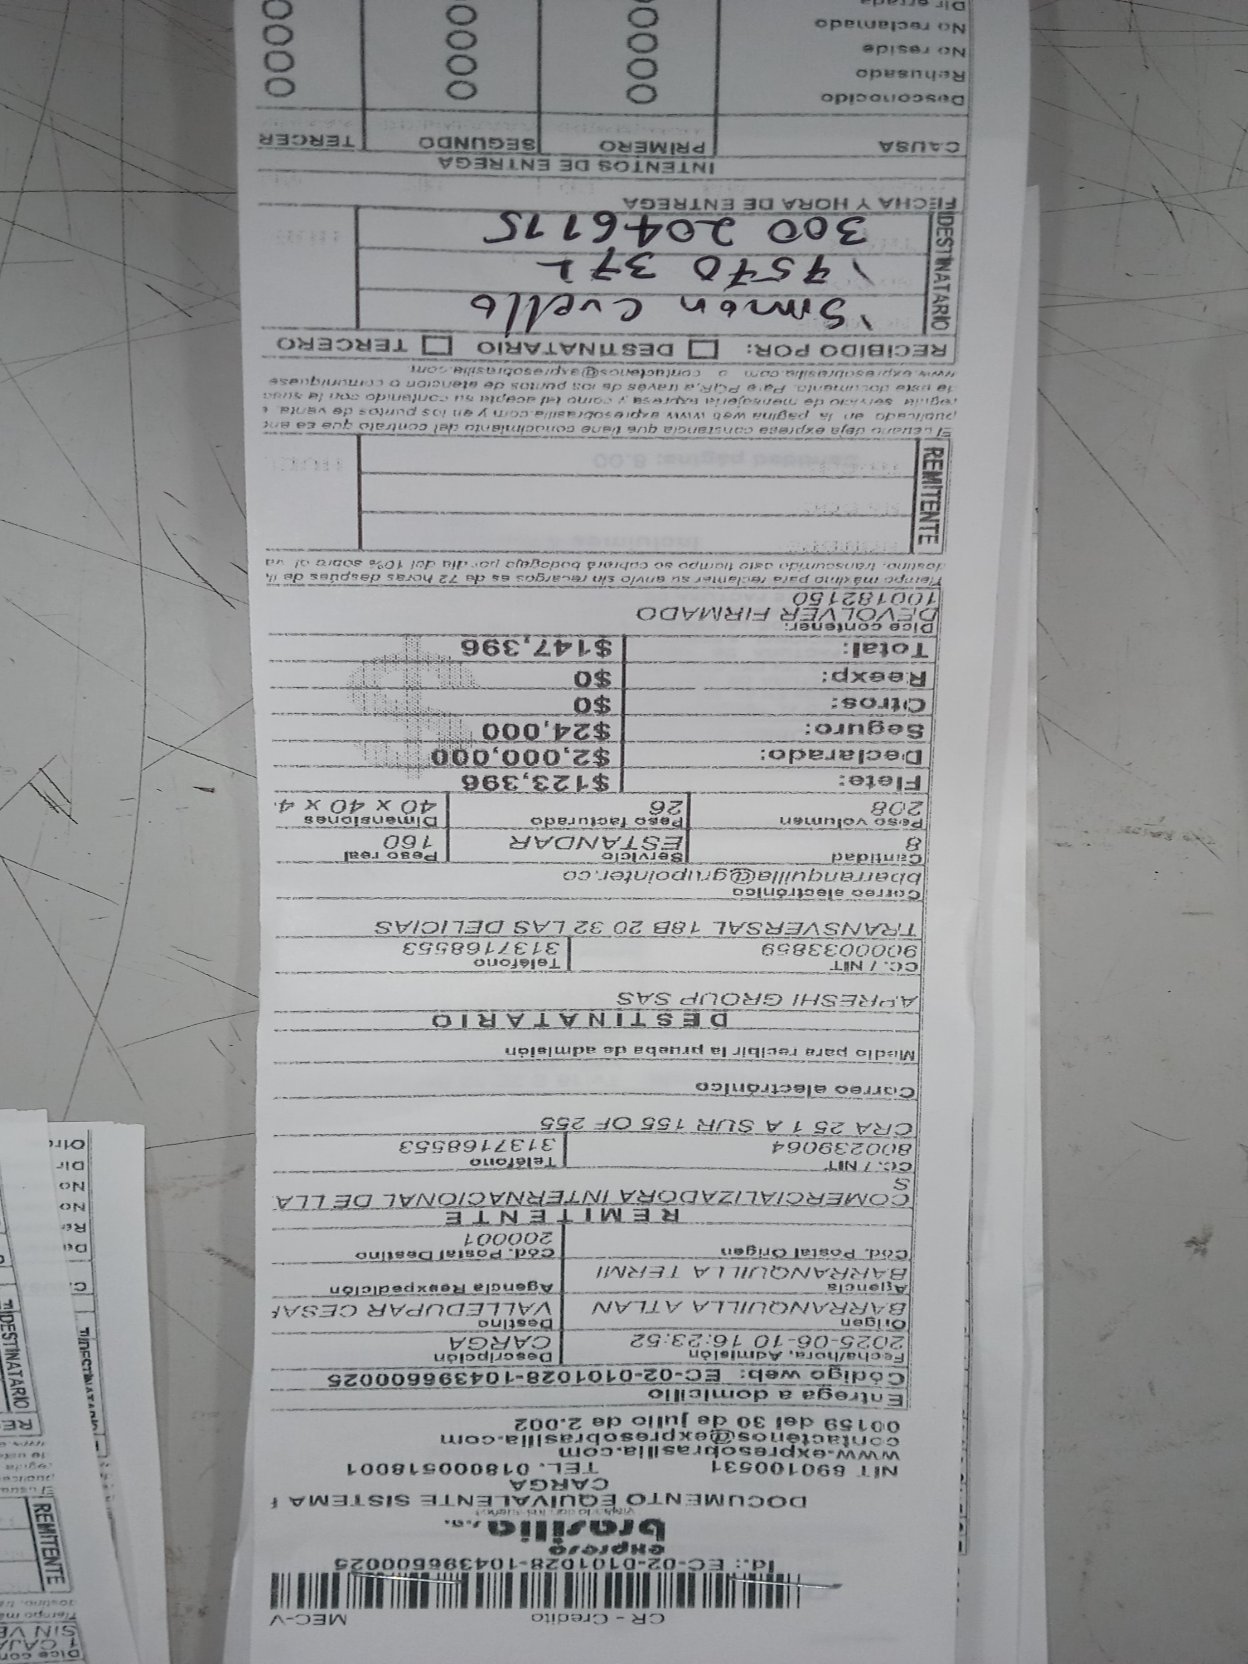 CR - Credito MEC-V
Id.: EC-02-0101028-104396600025
expreso
brasilia s.a.
DOCUMENTO EQUIVALENTE SISTEMA
CARGA
NIT 890100531 TEL. 018000518001
www.expresobrasilia.com
contactenos@expresobrasilia.com
00159 del 30 de julio de 2.002
Entrega a domicilio
Código web: EC-02-0101028-104396600025
Fecha/hora, Admisión Descripción
2025-06-10 16:23:52 CARGA
Origen Destino
BARRANQUILLA ATLAN VALLEDUPAR CESAR
Agencia Agencia Reexpedición
BARRANQUILLA TERMI
Cód. Postal Origen Cód. Postal Destino
200001
REMITENTE
COMERCIALIZADORA INTERNACIONAL DE LLA
S
CC. / NIT Teléfono
800239064 3137168553
CRA 25 1 A SUR 155 OF 255
Correo electrónico
Medio para recibir la prueba de admisión
DESTINATARIO
APRESHI GROUP SAS
CC. / NIT Teléfono
900033859 3137168553
TRANSVERSAL 18B 20 32 LAS DELICIAS
Correo electrónico
bbarranquilla@grupointer.co
Cantidad Servicio Peso real
8 ESTANDAR 160
Peso volumen Peso facturado Dimensiones
208 26 40 x 40 x 4
Flete: $123,396
Declarado: $2,000,000
Seguro: $24,000
Otros: $0
Reexp: $0
Total: $147,396
Dice contener:
DEVOLVER FIRMADO
100182150
Tiempo máximo para reclamar su envío sin recargos es de 72 horas después de
destino, transcurrido este tiempo se cobrará bodegaje por día del 10% sobre el va
REMITENTE
El usuario deja expresa constancia que tiene conocimiento del contrato que se en
publicado en la página web www.expresobrasilia.com y en los puntos de venta,
regula servicio de mensajería expresa y como tal acepta su contenido con la
de este documento. Para PQR,a través de los puntos de atención o comuníquese
www.expresobrasilia.com o contactenos@expresobrasilia.com
RECIBIDO POR: DESTINATARIO TERCERO
DESTINATARIO
Simon Cuello
7570 372
300 2046115
FECHA Y HORA DE ENTREGA
INTENTOS DE ENTREGA
CAUSA PRIMERO SEGUNDO TERCER
Desconocido
Rehusado
No reside
No reclamado
Dir errada
Dice con
1 CAJA
SIN VE
REMITENTE
DESTINATARIO